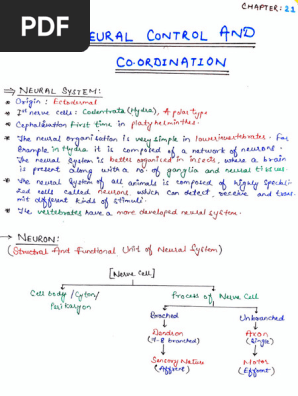 PDF
CHAPTER: 21
NEURAL CONTROL AND
CO-ORDINATION
⇒ NEURAL SYSTEM:
* Origin: Ectodermal
* Ist nerve cells: Coelentrata (Hydra), Apolar type
* Cephalisation first time in platyhelminthes.
* The neural organisation is very simple in lower invertebrates. For
Example in Hydra it is composed of a network of neurons.
The neural System is better organised in insects, where a brain
is present along with a no. of ganglia and neural tissues.
* The neural System of all animals is composed of highly speciali-
zed cells called neurons which can detect, receive and trans
mit different kinds of stimuli.
* The vertebrates have a more developed neural system.
→ NEURON:
(Structural And Functional Unit of Neural System)
[Nerve Cell]
Cell body/Cyton/
Perikaryon
Process of Nerve Cell
Brached
Unbranched
Dendron
(7-8 branched)
Axon
(Single)
Sensory Nature
(Affrent)
Motor
(Effrent)